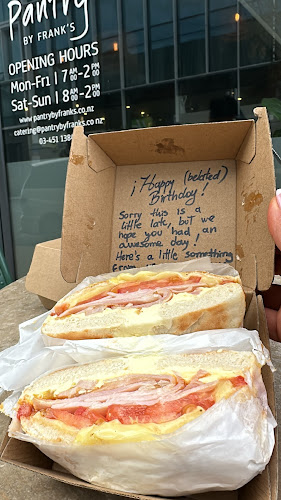 Pantry
BY FRANK'S
OPENING HOURS
Mon-Fri | 7 AM -2 PM
00 00
Sat-Sun | 8 AM -2 PM
00 00
www.pantrybyfranks.co.nz
catering@pantrybyfranks.co.nz
03-451 138
¡Happy (belated)
Birthday!
Sorry this is a
little late, but we
hope you had an
awesome day!
Here's a little something
from